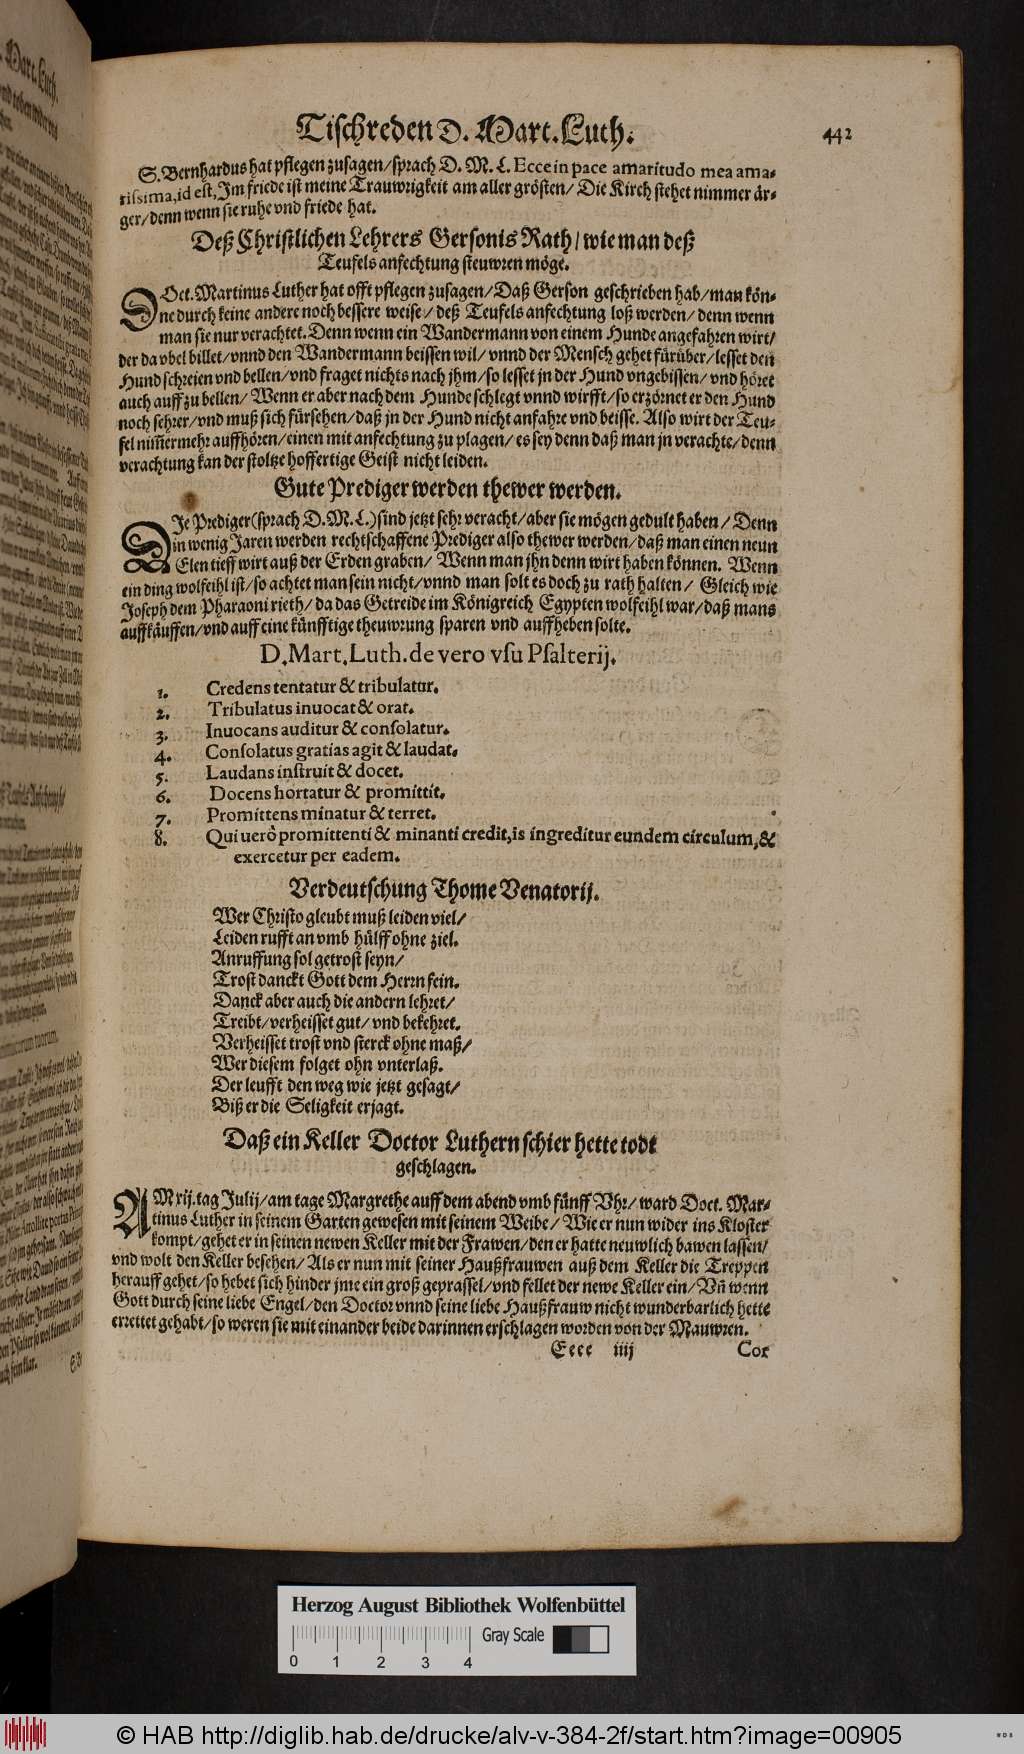 Tischreden D. Mart. Luth. 442
S. Bernhardus hat pflegen zusagen/ sprach D. M. L. Ecce in pace amaritudo mea ama-
rissima, id est, Im friede ist meine Trauwrigkeit am aller grösten/ Die Kirch stehet nimmer är-
ger/ denn wenn sie ruhe vnd friede hat.
Deß Christlichen Lehrers Gersonis Rath/ wie man deß
Teufels anfechtung steuwren möge.
DOct. Martinus Luther hat offt pflegen zusagen/ Daß Gerson geschrieben hab/ man kön-
ne durch keine andere noch bessere weise/ deß Teufels anfechtung loß werden/ denn wenn
man sie nur verachtet. Denn wenn ein Wandermann von einem Hunde angefahren wirt/
der da vbel billet/ vnnd den Wandermann beissen wil/ vnnd der Mensch gehet fürüber/ lesset den
Hund schreien vnd bellen/ vnd fraget nichts nach jhm/ so lesset jn der Hund vngebissen/ vnd höret
auch auff zu bellen/ Wenn er aber nach dem Hunde schlegt vnnd wirfft/ so erzörnet er den Hund
noch sehrer/ vnd muß sich fürsehen/ daß jn der Hund nicht anfahre vnd beisse. Also wirt der Teu-
fel nim̃ermehr auffhören/ einen mit anfechtung zu plagen/ es sey denn daß man jn verachte/ denn
verachtung kan der stoltze hoffertige Geist nicht leiden.
Gute Prediger werden thewer werden.
DIe Prediger (sprach D. M. L.) sind jetzt sehr veracht/ aber sie mögen gedult haben/ Denn
in wenig Jaren werden rechtschaffene Prediger also thewer werden/ daß man einen neun
Elen tieff wirt auß der Erden graben/ Wenn man jhn denn wirt haben können. Wenn
ein ding wolfeihl ist/ so achtet man sein nicht/ vnnd man solt es doch zu rath halten/ Gleich wie
Joseph dem Pharaoni rieth/ da das Getreide im Königreich Egypten wolfeihl war/ daß mans
auffkäuffen/ vnd auff eine künfftige theuwrung sparen vnd auffheben solte.
D. Mart. Luth. de vero vsu Psalterij.
1. Credens tentatur & tribulatur.
2. Tribulatus inuocat & orat.
3. Inuocans auditur & consolatur.
4. Consolatus gratias agit & laudat.
5. Laudans instruit & docet.
6. Docens hortatur & promittit.
7. Promittens minatur & terret.
8. Qui uerò promittenti & minanti credit, is ingreditur eundem circulum, &
exercetur per eadem.
Verdeutschung Thome Venatorij.
Wer Christo gleubt muß leiden viel/
Leiden rufft an vmb hülff ohne ziel.
Anruffung sol getrost seyn/
Trost danckt Gott dem Herrn fein.
Danck aber auch die andern lehret/
Treibt/ verheisset gut/ vnd bekehret.
Verheisset trost vnd sterck ohne maß/
Wer diesem folget ohn vnterlaß.
Der leufft den weg wie jetzt gesagt/
Biß er die Seligkeit erjagt.
Daß ein Keller Doctor Luthern schier hette todt
geschlagen.
AM xij. tag Julij/ am tage Margrethe auff dem abend vmb fünff Vhr/ ward Doct. Mar-
tinus Luther in seinem Garten gewesen mit seinem Weibe/ Wie er nun wider ins Kloster
kompt/ gehet er in seinen newen Keller mit der Frawen/ den er hatte neuwlich bawen lassen/
vnd wolt den Keller besehen/ Als er nun mit seiner Haußfrauwen auß dem Keller die Treppen
herauff gehet/ so hebet sich hinder jme ein groß geprassel/ vnd fellet der newe Keller ein/ Vñ wenn
Gott durch seine liebe Engel/ den Doctor vnnd seine liebe Haußfrauw nicht wunderbarlich hette
errettet gehabt/ so weren sie mit einander beide darinnen erschlagen worden von der Mauwren.
Eeee iiij Cor
Herzog August Bibliothek Wolfenbüttel
0 1 2 3 4 Gray Scale
© HAB http://diglib.hab.de/drucke/alv-v-384-2f/start.htm?image=00905